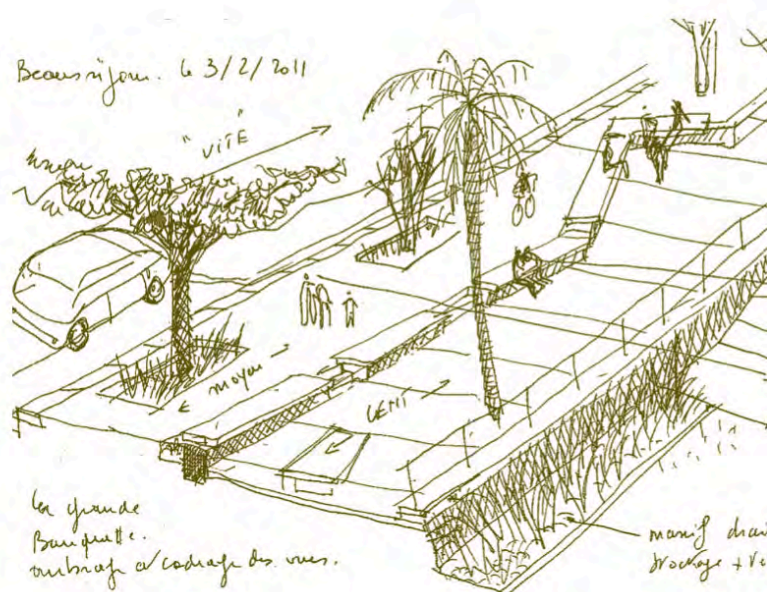 Beauséjour. le 3/2/2011
"VITE"
moyen
LENT
la grande
Banquette.
ombrage et cadrage des vues.
massif drai
stockage +